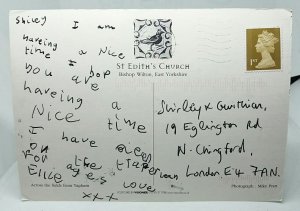 Shirley I am
haveing a Nice
time
I hop
you are
haveing a
Nice time
I have
for the
Ellie ages
love
xxx
ST EDITH'S CHURCH
Bishop Wilton, East Yorkshire
1ST
Shirley &
19 Eglington Rd
N. Chingford,
London. E4 7AN.
Across the fields from
Photograph : Mike Pratt